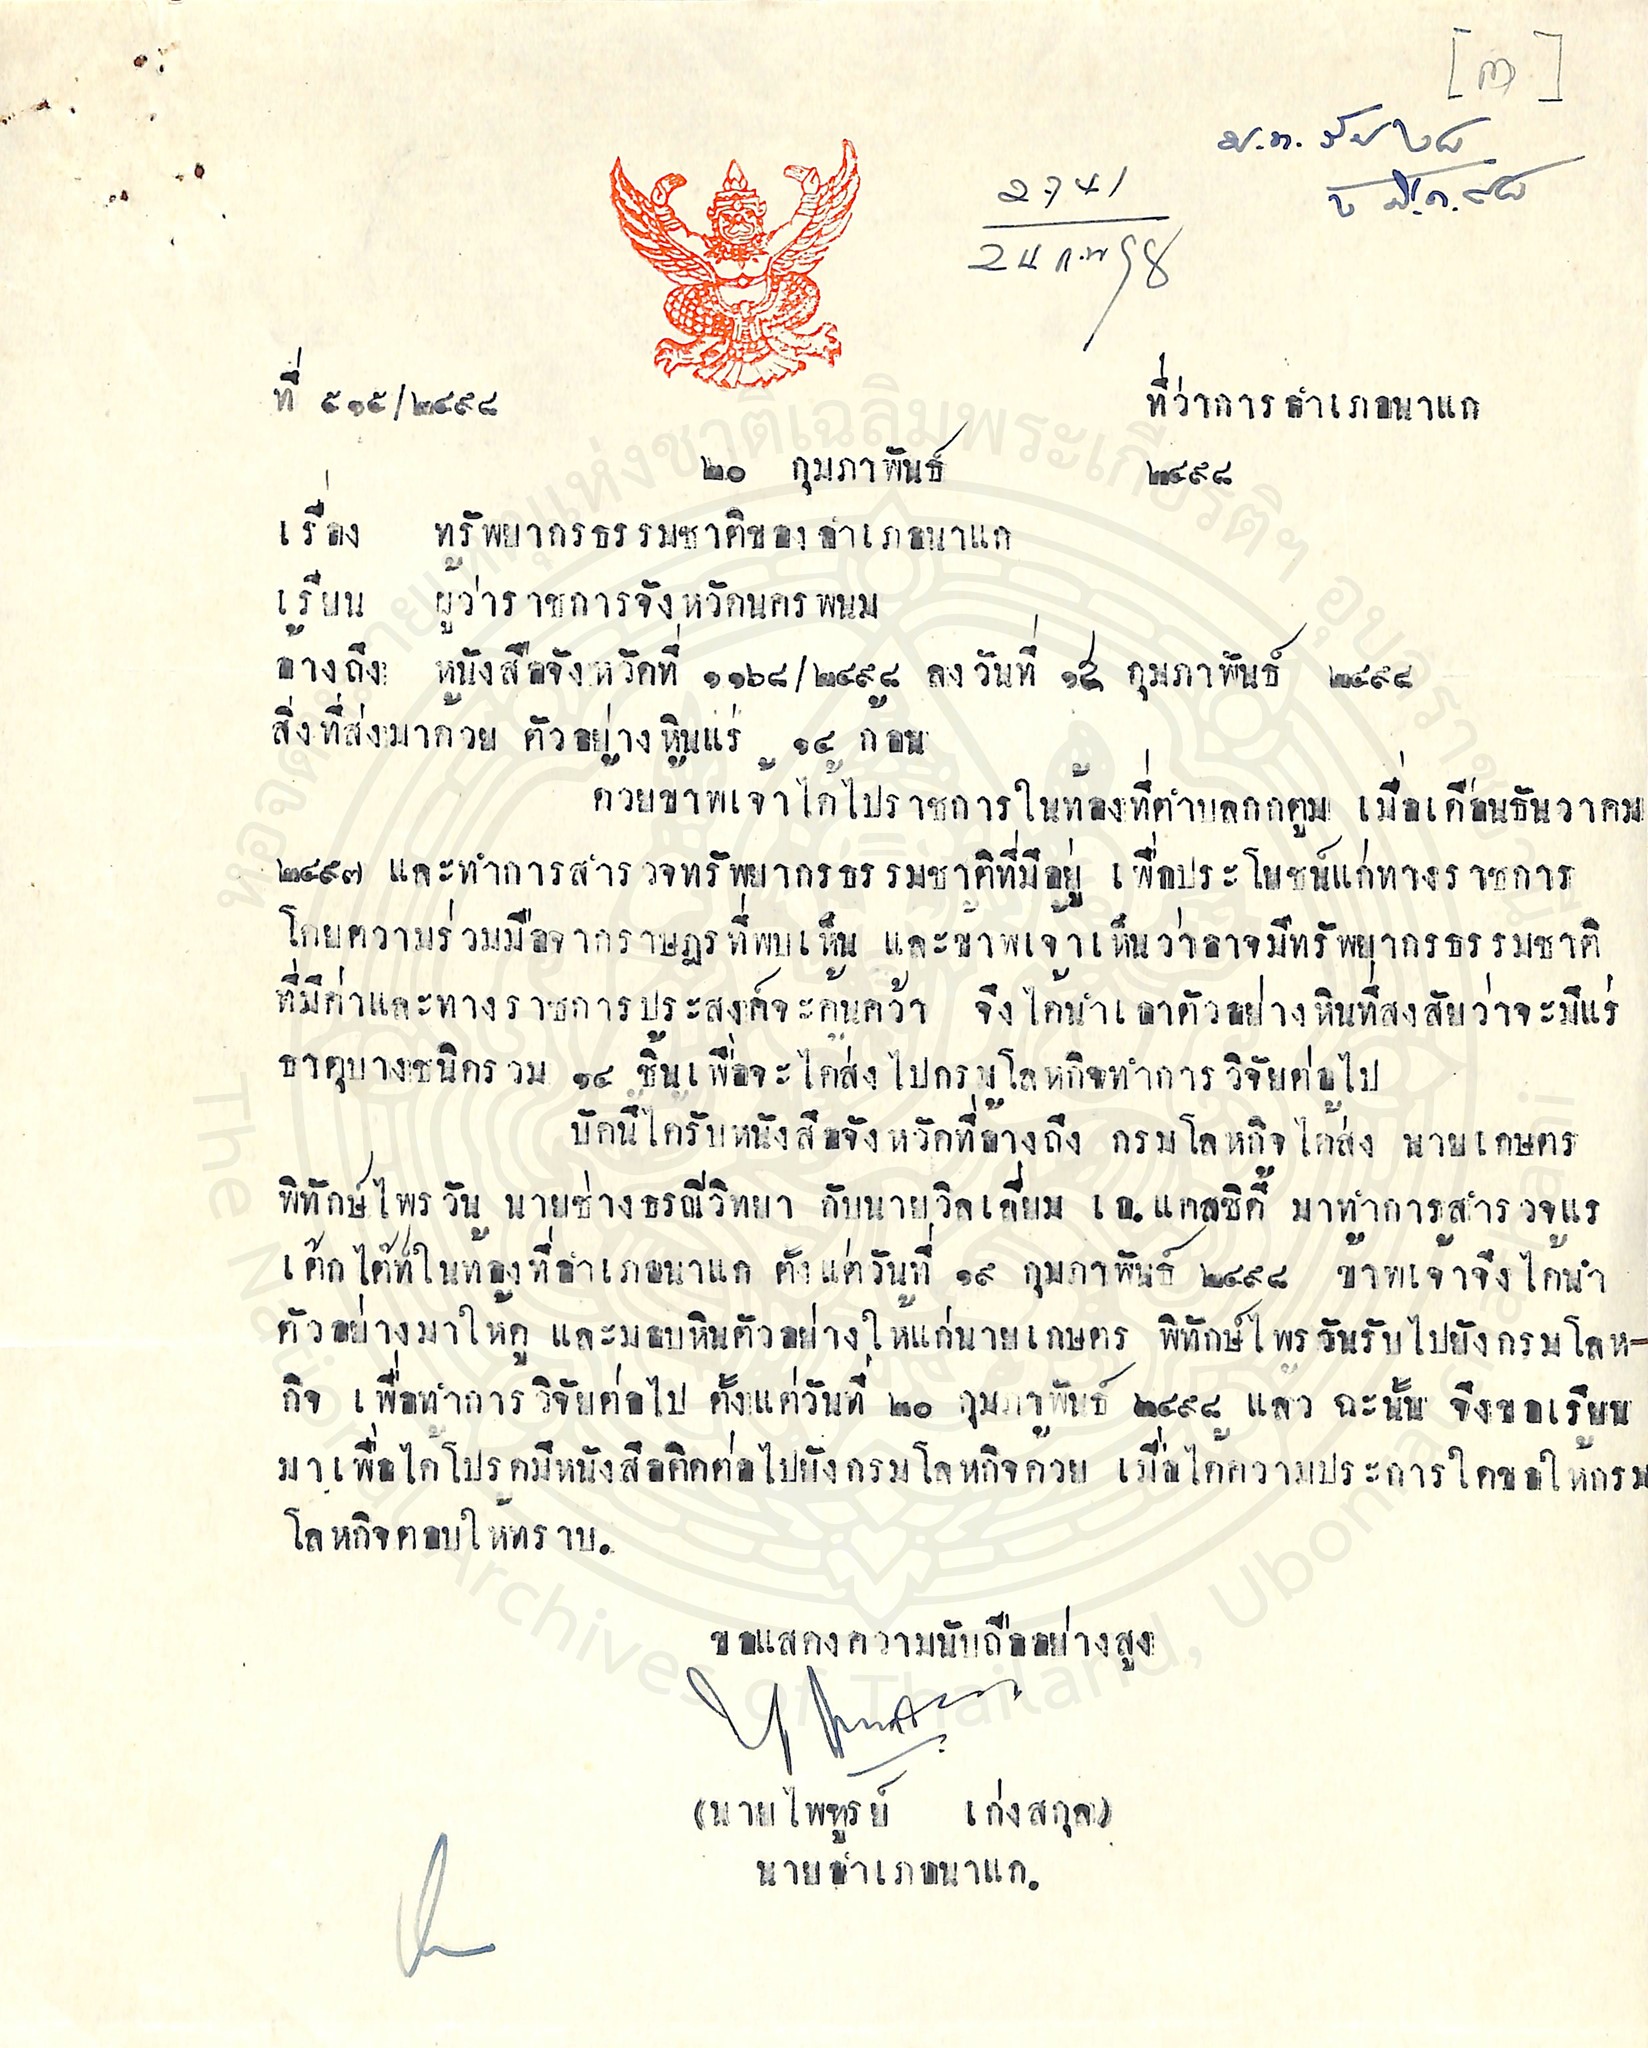 ที่ ๕๑๕/๒๔๙๘
ที่ว่าการอำเภอนาแก
๒๐ กุมภาพันธ์ ๒๔๙๘
เรื่อง ทรัพยากรธรรมชาติของอำเภอนาแก
เรียน ผู้ว่าราชการจังหวัดนครพนม
อ้างถึง หนังสือจังหวัดที่ ๑๑๖๘/๒๔๙๘ ลงวันที่ กุมภาพันธ์ ๒๔๙๘
สิ่งที่ส่งมาด้วย ตัวอย่างหินแร่ ๑๔ ก้อน
ด้วยข้าพเจ้าได้ไปราชการในท้องที่ตำบลกกตูม เมื่อเดือนธันวาคม
๒๔๙๗ และทำการสำรวจทรัพยากรธรรมชาติที่มีอยู่ เพื่อประโยชน์แก่ทางราชการ
โดยความร่วมมือจากราษฎรที่พบเห็น และข้าพเจ้าเห็นว่าอาจมีทรัพยากรธรรมชาติ
ที่มีค่าและทางราชการประสงค์จะค้นคว้า จึงได้นำเอาตัวอย่างหินที่สงสัยว่าจะมีแร่
ธาตุบางชนิดรวม ๑๔ ชิ้นเพื่อจะได้ส่งไปกรมโลหกิจทำการวิจัยต่อไป
บัดนี้ได้รับหนังสือจังหวัดที่อ้างถึง กรมโลหกิจได้ส่ง นายเกษตร
พิทักษ์ไพรวัน นายช่างธรณีวิทยา กับนายวิลเลี่ยม เอ.แคลซิดี้ มาทำการสำรวจแร่
เต๊กไต๊ท์ในท้องที่อำเภอนาแก ตั้งแต่วันที่ ๑๙ กุมภาพันธ์ ๒๔๙๘ ข้าพเจ้าจึงได้นำ
ตัวอย่างมาให้ดู และมอบหินตัวอย่างให้แก่นายเกษตร พิทักษ์ไพรวันรับไปยังกรมโลห-
กิจ เพื่อทำการวิจัยต่อไป ตั้งแต่วันที่ ๒๐ กุมภาพันธ์ ๒๔๙๘ แล้ว ฉะนั้น จึงขอเรียน
มาเพื่อได้โปรดมีหนังสือติดต่อไปยังกรมโลหกิจด้วย เมื่อได้ความประการใดขอให้กรม
โลหกิจตอบให้ทราบ.
ขอแสดงความนับถืออย่างสูง
(นายไพฑูรย์ เก่งสกุล)
นายอำเภอนาแก.
หอจดหมายเหตุแห่งชาติเฉลิมพระเกียรติฯ อุบลราชธานี
The National Archives of Thailand, Ubonratchathani